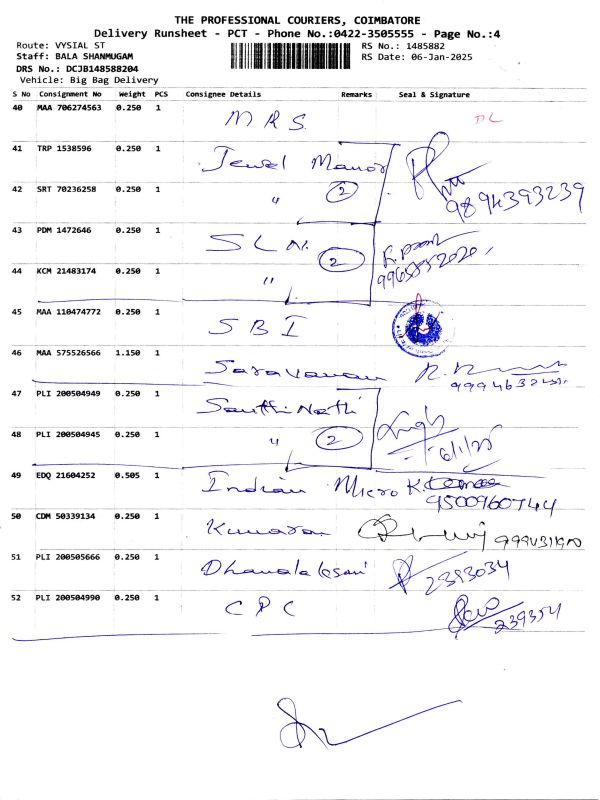 THE PROFESSIONAL COURIERS, COIMBATORE
Delivery Runsheet - PCT - Phone No.:0422-3505555 - Page No.:4
Route: VYSIAL ST
RS No.: 1485882
Staff: BALA SHANMUGAM
RS Date: 06-Jan-2025
DRS No.: DCJB148588204
Vehicle: Big Bag Delivery
S No Consignment No Weight PCS Consignee Details Remarks Seal & Signature
40 MAA 706274563 0.250 1 MRS
41 TRP 1538596 0.250 1 Jewel Manor
42 SRT 70236258 0.250 1 " 2 9894393239
43 PDM 1472646 0.250 1 SLN
44 KCM 21483174 0.250 1 " 2
45 MAA 110474772 0.250 1 SBI
46 MAA 575526566 1.150 1 Saravanan
47 PLI 200504949 0.250 1 Santhi Nathi
48 PLI 200504945 0.250 1 " 2 6/1/25
49 EDQ 21604252 0.505 1 Indian Micro 9500960744
50 CDM 50339134 0.250 1 Kumaran
51 PLI 200505666 0.250 1 2393034
52 PLI 200504990 0.250 1 CPC 239354